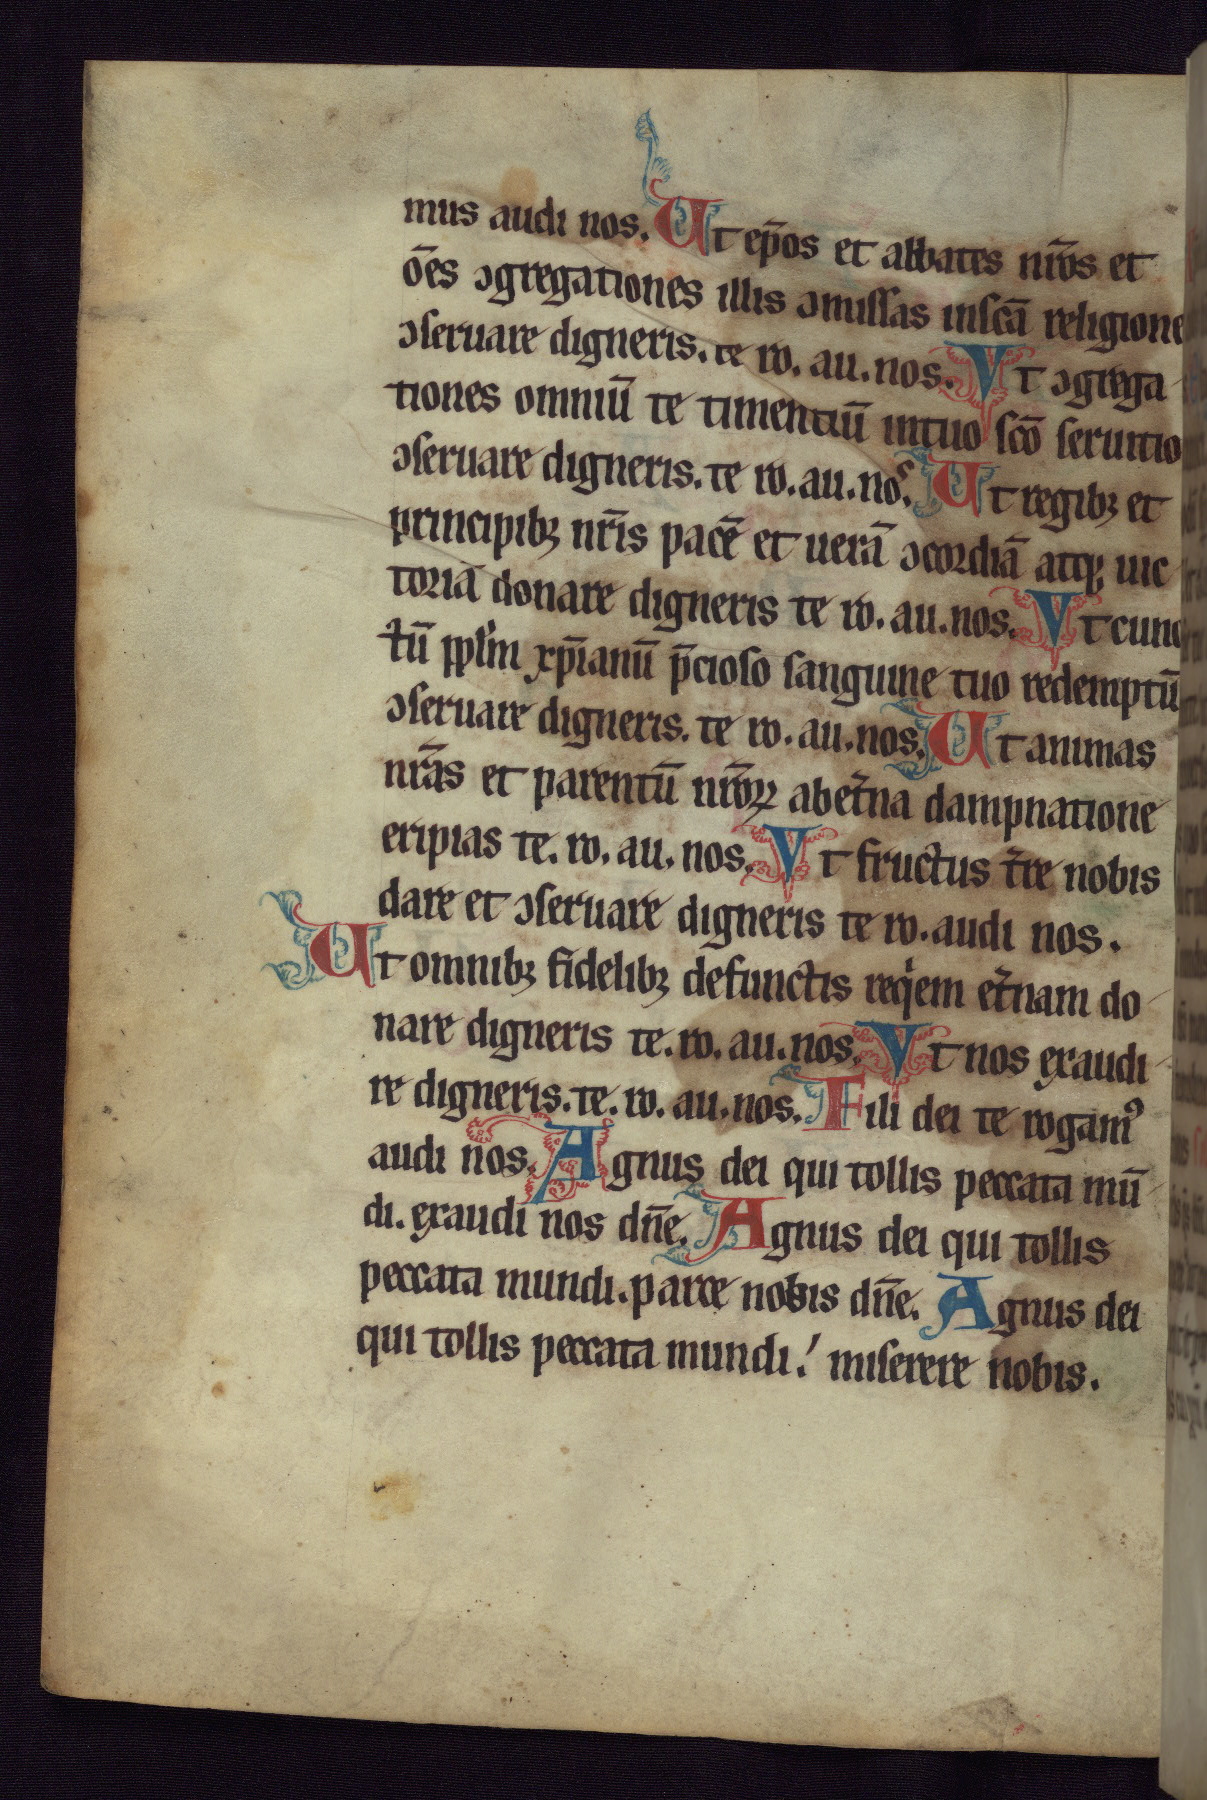 mus audi nos. Ut ep̄os et abbates nr̄os et
om̄s ɔgregationes illis ɔmissas in sc̄a religione
ɔseruare digneris. te ro. au. nos. Vt ɔgrega-
tiones omniū te timentiū in tuo sc̄o seruitio
ɔseruare digneris. te ro. au. nos. Ut regibꝫ et
principibꝫ nr̄is pacē et uerā ɔcordiā atqꝫ uic-
toriā donare digneris te ro. au. nos. Vt cunc
tū pp̄lm xp̄ianū p̄cioso sanguine tuo redemptū
ɔseruare digneris. te ro. au. nos. Ut animas
nr̄as et parentū nr̄oꝝ ab et̄na dampnatione
eripias te. ro. au. nos. Vt fructus t̄re nobis
dare et ɔseruare digneris te ro. audi nos.
Ut omnibꝫ fidelibꝫ defunctis reqͥem et̄nam do-
nare digneris te. ro. au. nos. Vt nos exaudi-
re digneris. te. ro. au. nos. Fili dei te rogamꝰ
audi nos. Agnus dei qui tollis peccata mū-
di. exaudi nos dn̄e. Agnus dei qui tollis
peccata mundi. parce nobis dn̄e. Agnus dei
qui tollis peccata mundi.' miserere nobis.